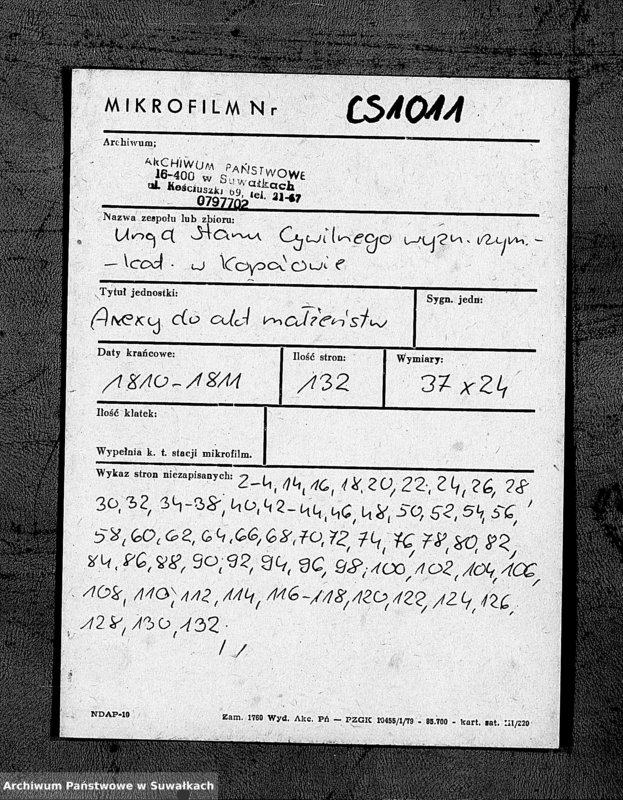 MIKROFILM Nr CS1011
Archiwum:
ARCHIWUM PAŃSTWOWE
16-400 w Suwałkach
ul. Kościuszki 69, tel. 21-67
0797702
Nazwa zespołu lub zbioru:
Urząd Stanu Cywilnego wyzn. rzym.-
-kat. w Kopciowie
Tytuł jednostki:
Sygn. jedn:
Anexy do akt małżeństw
Daty krańcowe:
Ilość stron:
Wymiary:
1810-1811
132
37 x 24
Ilość klatek:
Wypełnia k. t. stacji mikrofilm.
Wykaz stron niezapisanych: 2-4, 14, 16, 18, 20, 22, 24, 26, 28,
30, 32, 34-38, 40, 42-44, 46, 48, 50, 52, 54, 56,
58, 60, 62, 64, 66, 68, 70, 72, 74, 76, 78, 80, 82,
84, 86, 88, 90, 92, 94, 96, 98, 100, 102, 104, 106,
108, 110, 112, 114, 116-118, 120, 122, 124, 126,
128, 130, 132.
NDAP-10
Zam. 1760 Wyd. Akc. Pń — PZGK 10455/1/79 - 85.700 - kart. sat. III/220
Archiwum Państwowe w Suwałkach